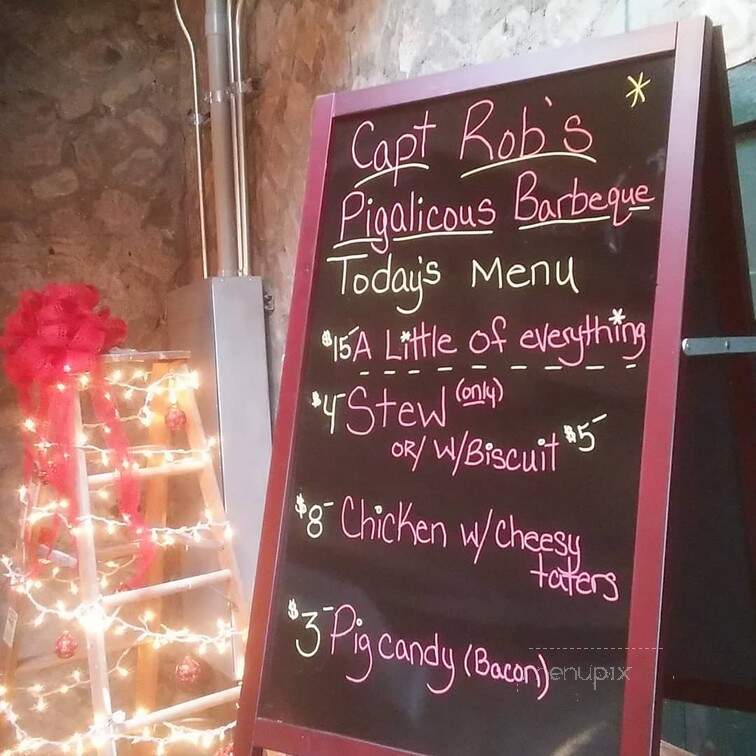 Capt Rob's
Pigalicous Barbeque
Today's Menu
$15- A Little of everything
$4- Stew (only)
OR/ W/Biscuit $5-
$8- Chicken w/cheesy
taters
$3- Pig candy (Bacon)
menupix